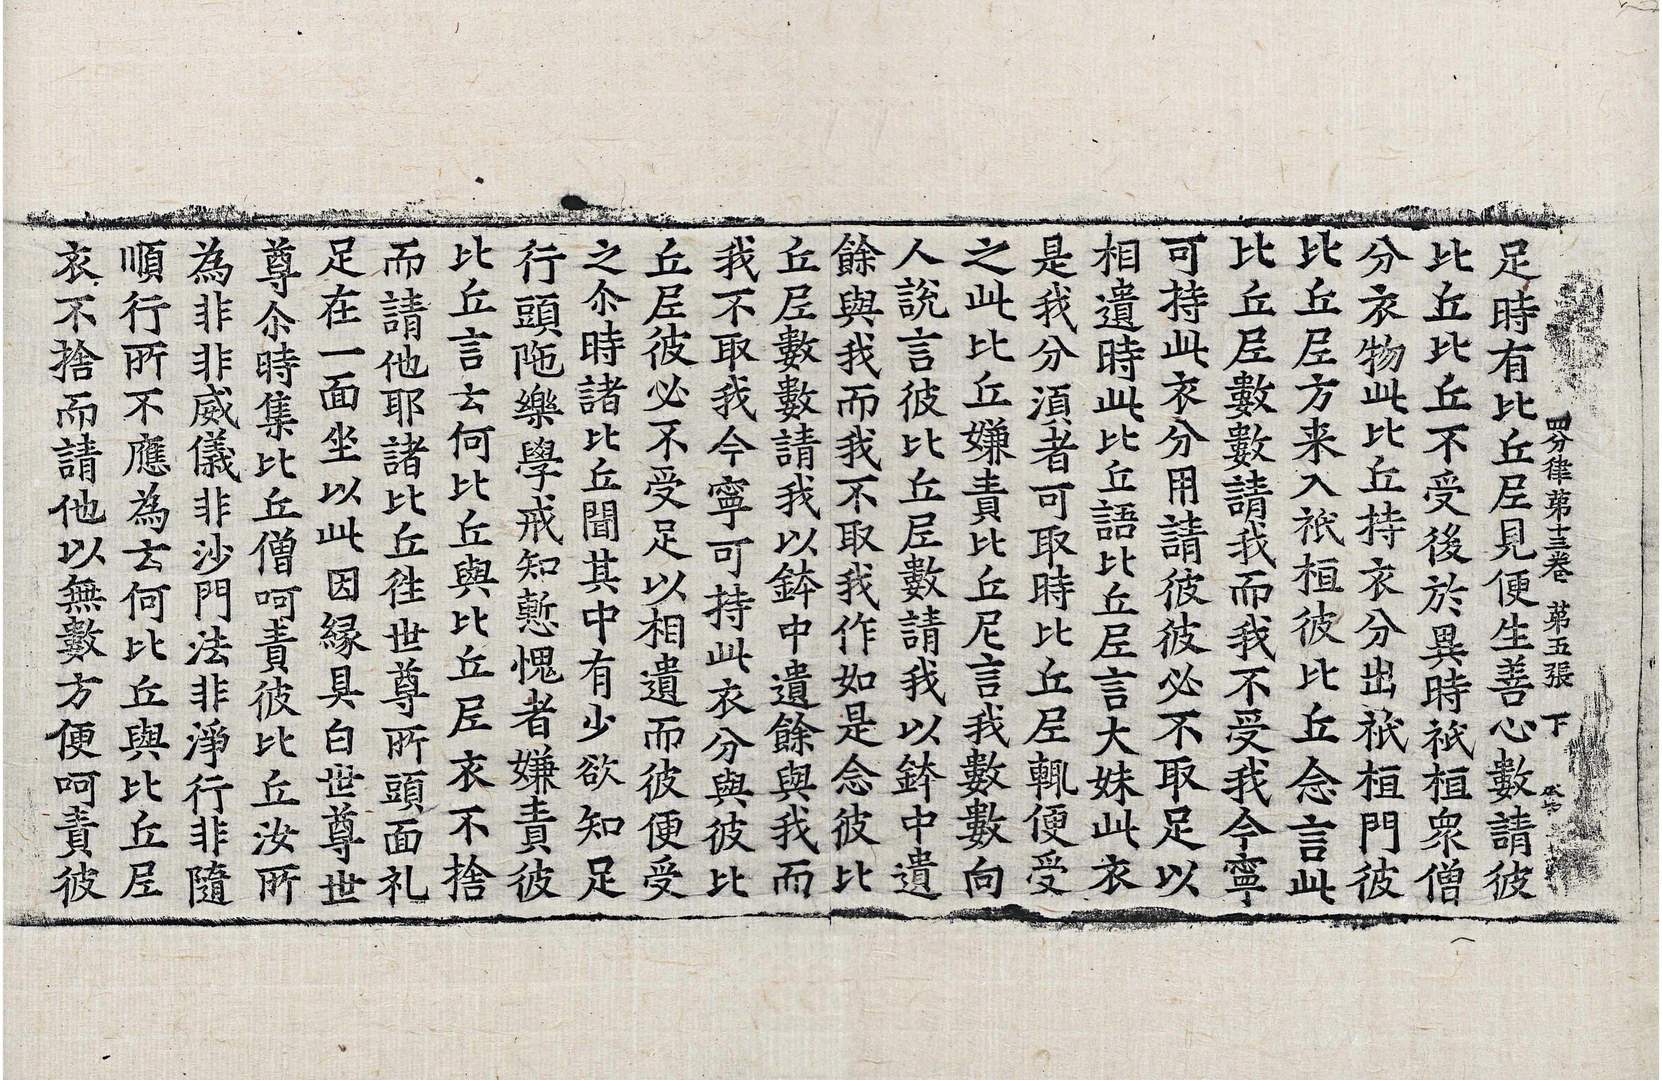 四分律第十三卷 第五張 下
足時有比丘尼見便生善心數請彼
比丘比丘不受後於異時祇桓眾僧
分衣物此比丘持衣分出祇桓門彼
比丘尼方来入祇桓彼比丘念言此
比丘尼數數請我而我不受我今寧
可持此衣分用請彼彼必不取足以
相遺時此比丘語比丘尼言大妹此衣
是我分湏者可取時比丘尼輒便受
之此比丘嫌責比丘尼言我數數向
人說言彼比丘尼數請我以鉢中遺
餘與我而我不取我作如是念彼比
丘尼數數請我以鉢中遺餘與我而
我不取我今寧可持此衣分與彼比
丘尼彼必不受足以相遺而彼便受
之尒時諸比丘聞其中有少欲知足
行頭陁樂學戒知慙愧者嫌責彼
比丘言云何比丘與比丘尼衣不捨
而請他耶諸比丘徃世尊所頭面礼
足在一面坐以此因縁具白世尊世
尊尒時集比丘僧呵責彼比丘汝所
為非非威儀非沙門法非淨行非隨
順行所不應為云何比丘與比丘尼
衣不捨而請他以無數方便呵責彼